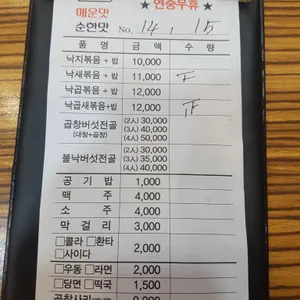 매운맛 ★연중무휴
순한맛 No. 14, 15
품 명 금 액 수 량
낙지볶음 + 밥 10,000
낙새볶음+밥 11,000 F
낙곱볶음+밥 12,000
낙곱새볶음+밥 12,000 F
곱창버섯전골 (대창+곱창) (2人) 30,000
(3人) 40,000
(4人) 50,000
불낙버섯전골 (2人) 30,000
(3人) 35,000
(4人) 40,000
공 기 밥 1,000
맥 주 4,000
소 주 4,000
막 걸 리 3,000
□콜라 □환타
□사이다 2,000
□우동 □라면 2,000
□당면 □떡국 1,500